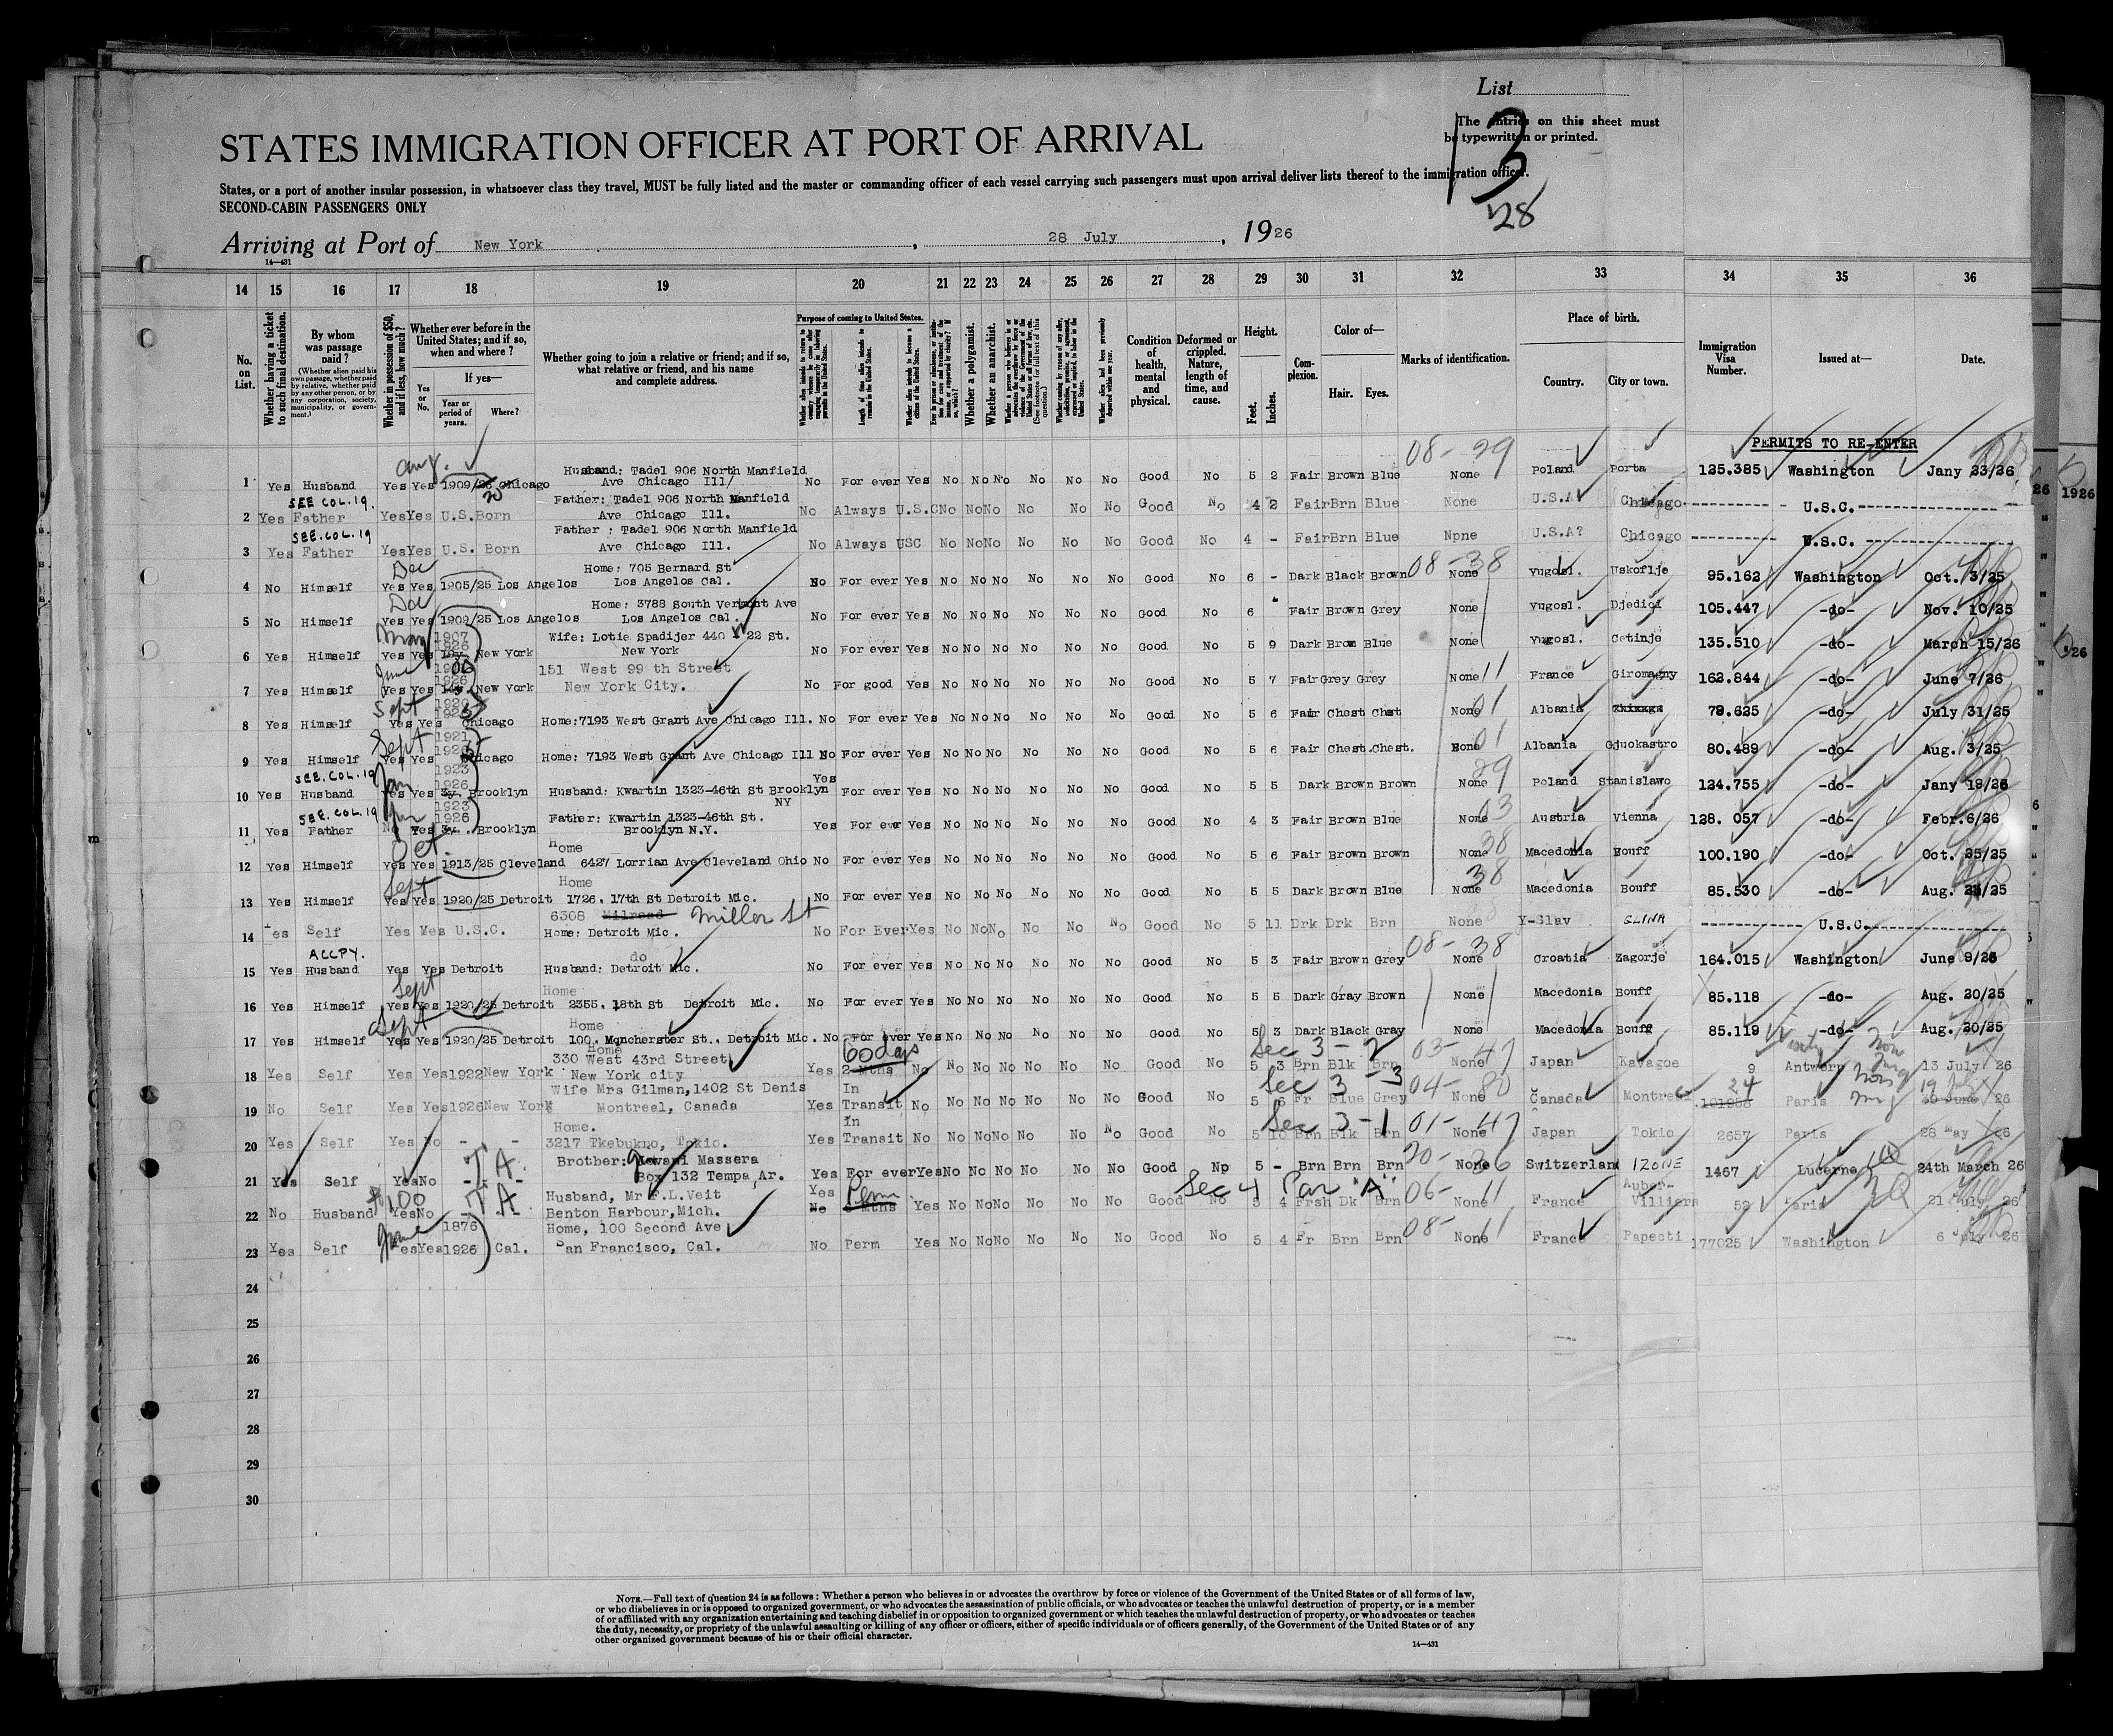 List
13
28
The entries on this sheet must
be typewritten or printed.
STATES IMMIGRATION OFFICER AT PORT OF ARRIVAL
States, or a port of another insular possession, in whatsoever class they travel, MUST be fully listed and the master or commanding officer of each vessel carrying such passengers must upon arrival deliver lists thereof to the immigration officer.
SECOND-CABIN PASSENGERS ONLY
Arriving at Port of New York, 28 July, 1926
14—431
14 15 16 17 18 19 20 21 22 23 24 25 26 27 28 29 30 31 32 33 34 35 36
No. on List.
Whether having a ticket to such final destination.
By whom was passage paid?
(Whether alien paid his own passage, whether paid by relative, whether paid by any other person, or by any corporation, society, municipality, or government.)
Whether in possession of $50, and if less, how much?
Whether ever before in the United States; and if so, when and where?
If yes—
Yes or No.
Year or period of years.
Where?
Whether going to join a relative or friend; and if so, what relative or friend, and his name and complete address.
Purpose of coming to United States.
Length of time alien intends to remain in the United States.
Whether alien intends to become a citizen of the United States.
Whether a polygamist.
Whether an anarchist.
Condition of health, mental and physical.
Deformed or crippled. Nature, length of time, and cause.
Height.
Feet. Inches.
Complexion.
Color of—
Hair. Eyes.
Marks of identification.
Place of birth.
Country. City or town.
Immigration Visa Number.
Issued at—
Date.
PERMITS TO RE-ENTER
Aug. 08-29
Husband: Tadel 906 North Manfield
1 Yes Husband Yes Yes 1909/26 Chicago Ave Chicago Ill/ No For ever Yes No No No No No No Good No 5 2 Fair Brown Blue None Poland Porta 125.385 Washington Jany 23/26
SEE COL. 19. Father: Tadel 906 North Manfield
2 Yes Father Yes Yes U.S. Born Ave Chicago Ill. No Always U.S.C No No No No No No Good No 4 2 Fair Brn Blue None U.S.A Chicago U.S.C.
SEE. COL. 19 Father : Tadel 906 North Manfield
3 Yes Father Yes Yes U.S. Born Ave Chicago Ill. No Always USC No No No No No No Good No 4 - Fair Brn Blue Npne U.S.A? Chicago U.S.C.
Dec Home: 705 Bernard St 08-38
4 No Himself Yes Yes 1905/25 Los Angelos Los Angelos Cal. No For ever Yes No No No No No No Good No 6 - Dark Black Brown None Yugosl. Uskoflje 95.162 Washington Oct. 3/25
Dec Home: 3788 South Vermont Ave
5 No Himself Yes Yes 1909/25 Los Angelos Los Angelos Cal. No For ever Yes No No No No No No Good No 6 " Fair Brown Grey None Yugosl. Djedici 105.447 -do- Nov. 10/25
May 1907 1926 Wife: Lotie Spadijer 440 22 St.
6 Yes Himself Yes Yes New York New York No For ever Yes No No No No No No Good No 5 9 Dark Brown Blue None Yugosl. Cetinje 135.510 -do- March 15/26
June 1926 151 West 99 th Street
7 Yes Himself Yes Yes New York New York City. No For good Yes No No No No No No Good No 5 7 Fair Grey Grey None 11 France Giromagny 162.844 -do- June 7/26
Sept
8 Yes Himself Yes Yes Chicago Home:7193 West Grant Ave Chicago Ill. No For ever Yes No No No No No No Good No 5 6 Fair Chest Chst None 01 Albania 79.625 -do- July 31/25
Sept 1921
9 Yes Himself Yes Yes Chicago Home: 7193 West Grant Ave Chicago Ill No For ever Yes No No No No No No Good No 5 6 Fair Chest. Chest. None 01 Albania Gjuokastro 80.489 -do- Aug. 3/25
SEE. COL. 19 Jan 1923 1926 Yes 29
10 Yes Husband Yes Yes 3y. Brooklyn Husband: Kwartin 1323-46th St Brooklyn NY For ever Yes No No No No No No Good No 5 5 Dark Brown Brown None Poland Stanislawo 124.755 -do- Jany 19/26
SEE. COL. 19 Jan 1923 1926 Father: Kwartin 1323-46th St. 03
11 Yes Father No Yes 3y. Brooklyn Brooklyn N.Y. Yes For ever Yes No No No No No No Good No 4 3 Fair Brown Blue None Austria Vienna 128. 057 -do- Febr.6/26
Oct. Home 38
12 Yes Himself Yes Yes 1913/25 Cleveland 6427 Lorrian Ave Cleveland Ohio No For ever Yes No No No No No No Good No 5 6 Fair Brown Brown None Macedonia Bouff 100.190 -do- Oct. 25/25
Sept Home 38
13 Yes Himself Yes Yes 1920/25 Detroit 1726. 17th St Detroit Mic. No For ever Yes No No No No No No Good No 5 5 Dark Brown Blue None Macedonia Bouff 85.530 -do- Aug. /25
6308 Milread Miller St
14 Yes Self Yes Yes U.S.C. Home: Detroit Mic. No For Ever Yes No No No No No No Good No 5 11 Drk Drk Brn None Y-Slav GLINA U.S.C.
ACCPY. do 08-38
15 Yes Husband Yes Yes Detroit Husband: Detroit Mic. No For ever Yes No No No No No No Good No 5 3 Fair Brown Grey None Croatia Zagorje 164.015 Washington June 9/26
Sept Home
16 Yes Himself Yes Yes 1920/25 Detroit 2355. 18th St Detroit Mic. No For ever Yes No No No No No No Good No 5 5 Dark Gray Brown None Macedonia Bouff 85.118 -do- Aug. 20/25
Sept Home
17 Yes Himself Yes Yes 1920/25 Detroit 100. Moncherster St. Detroit Mic. No For ever Yes No No No No No No Good No 5 3 Dark Black Gray None Macedonia Bouff 85.119 -do- Aug. 20/25
Home 330 West 43rd Street 60 days Sec 3-2 03-47
18 Yes Self Yes Yes 1922 New York New York city Yes 2 Mths No No No No No No No Good No 5 3 Brn Blk Brn None Japan Kavagoe 9 Antwerp 13 July 26
Wife Mrs Gilman, 1402 St Denis In Sec 3-3 04-80 24
19 No Self Yes Yes 1926 New York Montreal, Canada Yes Transit No No No No No No No Good No 5 6 Fr Blue Grey None Canada Montreal 101958 Paris 26
Home. In Sec 3-1 01-47
20 Yes Self Yes No - - 3217 Tkebukno, Tokio. Yes Transit No No No No No No No Good No 5 10 Brn Blk Brn None Japan Tokio 2657 Paris 28 May 26
T A. Brother: Massera 20-36
21 Yes Self Yes No Box 132 Tempa, Ar. Yes For ever Yes No No No No No No Good No 5 - Brn Brn Brn None Switzerland IZONE 1467 Lucerne 24th March 26
$100 T A Husband, Mr F.L.Veit Yes Perm Sec 4 Par "A" 06-11 Auber-
22 No Husband Yes No Benton Harbour, Mich. No Mths Yes No No No No No No Good No 5 4 Frsh Dk Brn None France Villiers 52 Paris 21 July 26
June 1876 Home, 100 Second Ave 08-11
23 Yes Self Yes Yes 1926 Cal. San Francisco, Cal. No Perm Yes No No No No No No Good No 5 4 Fr Brn Brn None France Papeeti 177025 Washington 6 July 26
24
25
26
27
28
29
30
NOTE.—Full text of question 24 is as follows: Whether a person who believes in or advocates the overthrow by force or violence of the Government of the United States or of all forms of law,
or who disbelieves in or is opposed to organized government, or who advocates the assassination of public officials, or who advocates or teaches the unlawful destruction of property, or is a member
of or affiliated with any organization entertaining and teaching disbelief in or opposition to organized government or which teaches the unlawful destruction of property, or who advocates or teaches
the duty, necessity, or propriety of the unlawful assaulting or killing of any officer or officers, either of specific individuals or of officers generally, of the Government of the United States or of any
other organized government because of his or their official character.
14—431